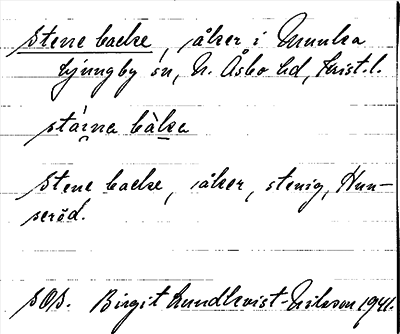 Stene backe, åker i Munka
Ljungby sn, N. Åsbo hd, Krist. l.
stáina bàka
Stene backe, åker, stenig, Hun-
seröd.
SOS. Birgit Lundkvist-Nilsson 1941.